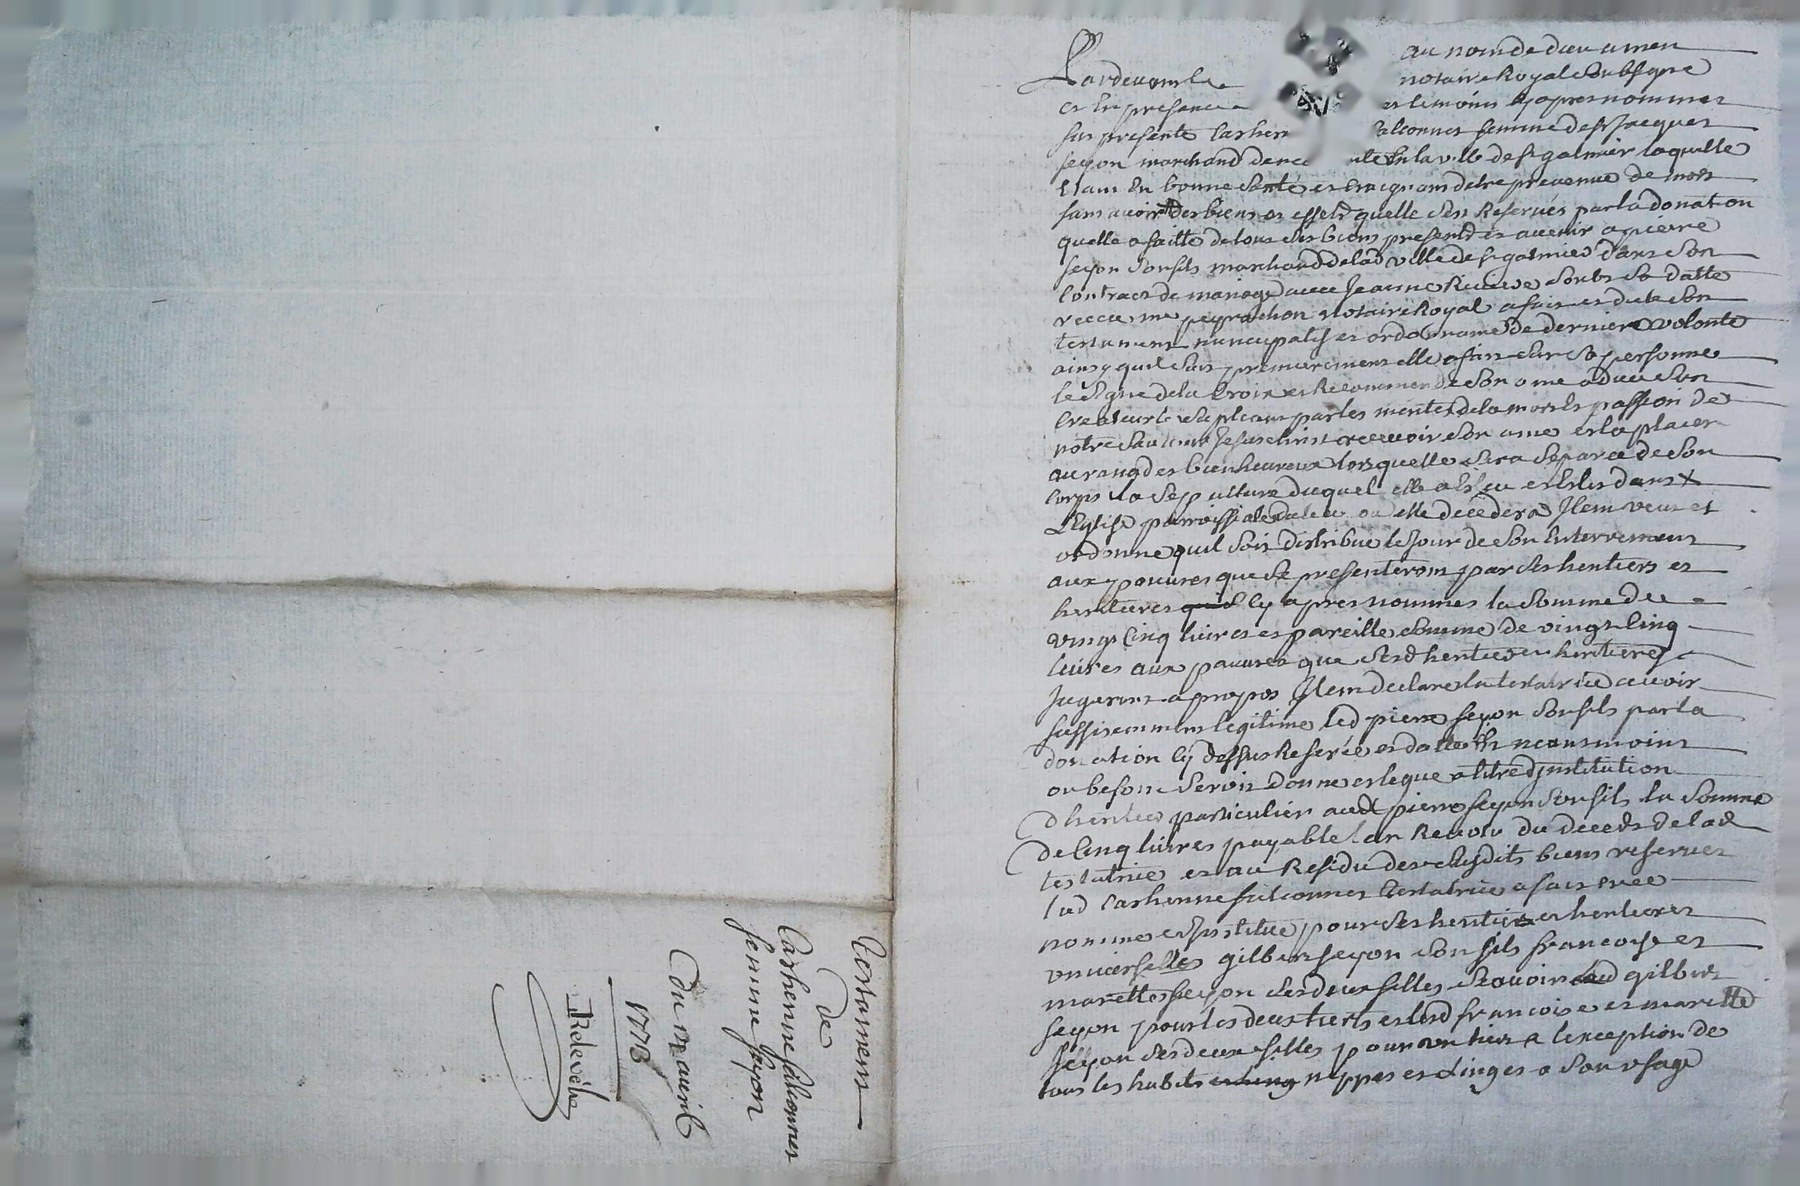 au nom de dieu amen
Pardevant le notaire Royal Soubsigne
et En presence et temoins Cy apres nommes
fut presente Catherine falconnet femme de Sr Jacques
seyon marchand demeurante En la ville de st galmier laquelle
Etant En bonne Santé et Craignant detre prevenue de mort
sans avoir des biens et effets quelle s'est Reservés par la donation
quelle a faitte de tous ses biens presents et avenir a pierre
seyon son fils marchand de lad ville de st galmier dans son
Contract de mariage avec Jeanne soubs sa datte
reccu me peyrachon notaire Royal a fait et dicté son
testament nuncupatif et ordonnance de derniere volonte
ainsy quil suit premierement elle a fait sur sa personne
le signe de la Croix et Recommende son ame a dieu son
Createur le supliant par les merites de la mort et passion de
notre sauveur Jesus christ recevoir son ame et la placer
au rang des bienheureux lors quelle sera separée de son
corps la sepulture duquel elle a esleu dans
L'Eglise parroissiale du lieu ou elle decedera Item veut et
ordonne quil soit distribue le Jour de son Enterrement
aux pauvres que se presenteront par ses heritiers et
heritieres cy apres nommes la somme de
vingt Cinq livres et pareille somme de vingt Cinq
livres aux pauvres que sesd heritiers et heritieres
Jugeront a propos Item declare la testatrice avoir
suffisemment legitime led pierre seyon son fils par la
donation Cy dessus Reservée et datte et neansmoins
ou besoin seroit donne et legue a titre d'institution
d heritier particulier aud pierre seyon son fils la somme
de Cinq livres payable l an Revolu du deceds de lad
testatrice et au Residu des susdits biens reserves
lad Catherine falconnet testatrice a fait cree
nomme et Institue pour ses heritiers et heritieres
universelles gilbert seyon son fils francoise et
mariette seyon ses deux filles scavoir led gilbert
seyon pour les deux tierts et lesd francoise et mariette
seyon ses deux filles pour un tiers a l exception de
tous les habits nippes et linges a son usage
Testament
de
Catherine falconnet
femme seyon
Du avril
1773
Relevé